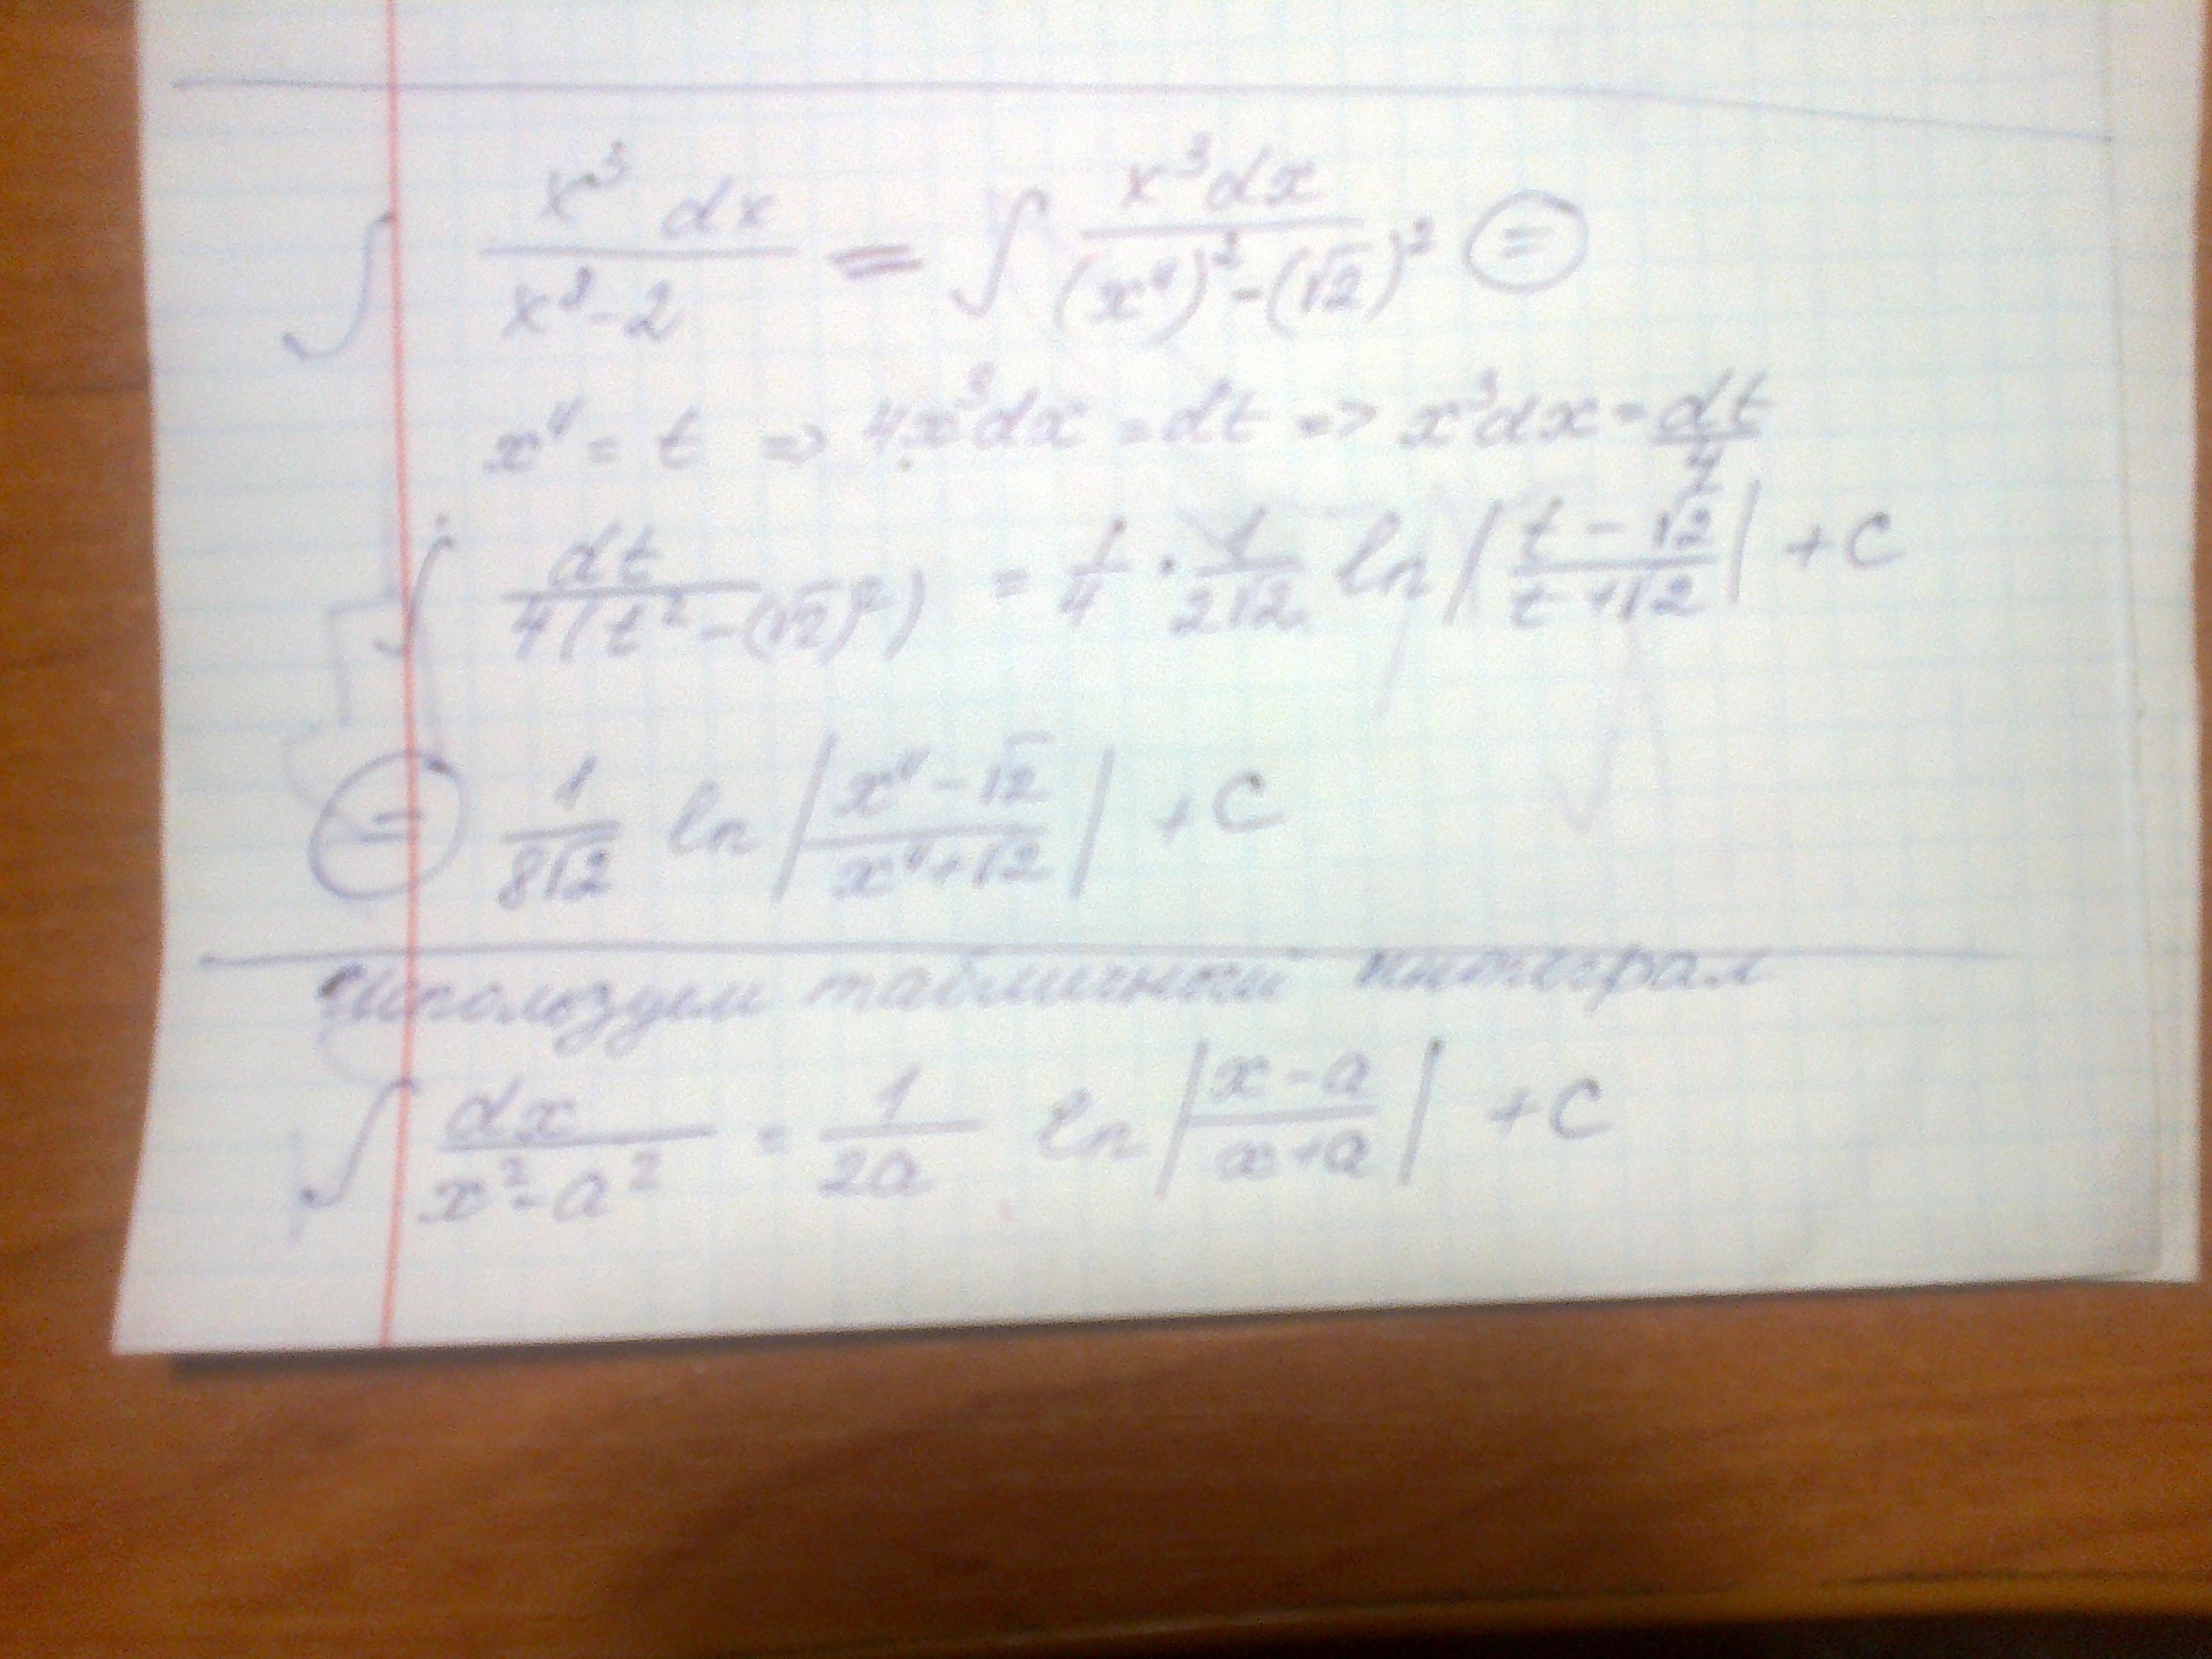 ∫ x³ dx / x⁸ - 2 = ∫ x³dx / (x⁴)² - (√2)² =
x⁴ = t => 4x³dx = dt => x³dx = dt/4
∫ dt / 4(t² - (√2)²) = 1/4 · 1/2√2 ln |t - √2 / t + √2| + C
= 1/8√2 ln |x⁴ - √2 / x⁴ + √2| + C
Используем табличный интеграл
∫ dx / x² - a² = 1/2a ln |x - a / x + a| + C